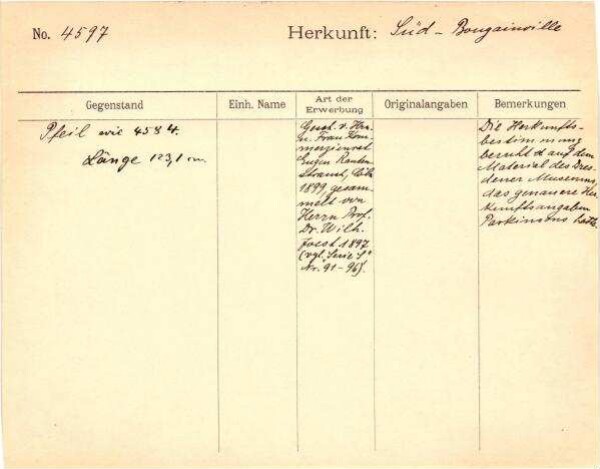 No. 4597
Herkunft: Süd - Bougainville
Gegenstand
Einh. Name
Art der
Erwerbung
Originalangaben
Bemerkungen
Pfeil wie 4584.
Länge 123,1 cm.
Gesch. v. Hrn.
u. Frau Kom-
merzienrat
Eugen Rauten-
strauch, Cöln
1899, gesam-
melt von
Herrn Prof.
Dr. Wilh.
Joest 1897
(vgl. Serie
Nr. 91-96).
Die Herkunfts-
bestimmung
beruht auf dem
Material des Dres-
dener Museums,
das genauere Her-
kunftsangaben
Parkinsons hatte.